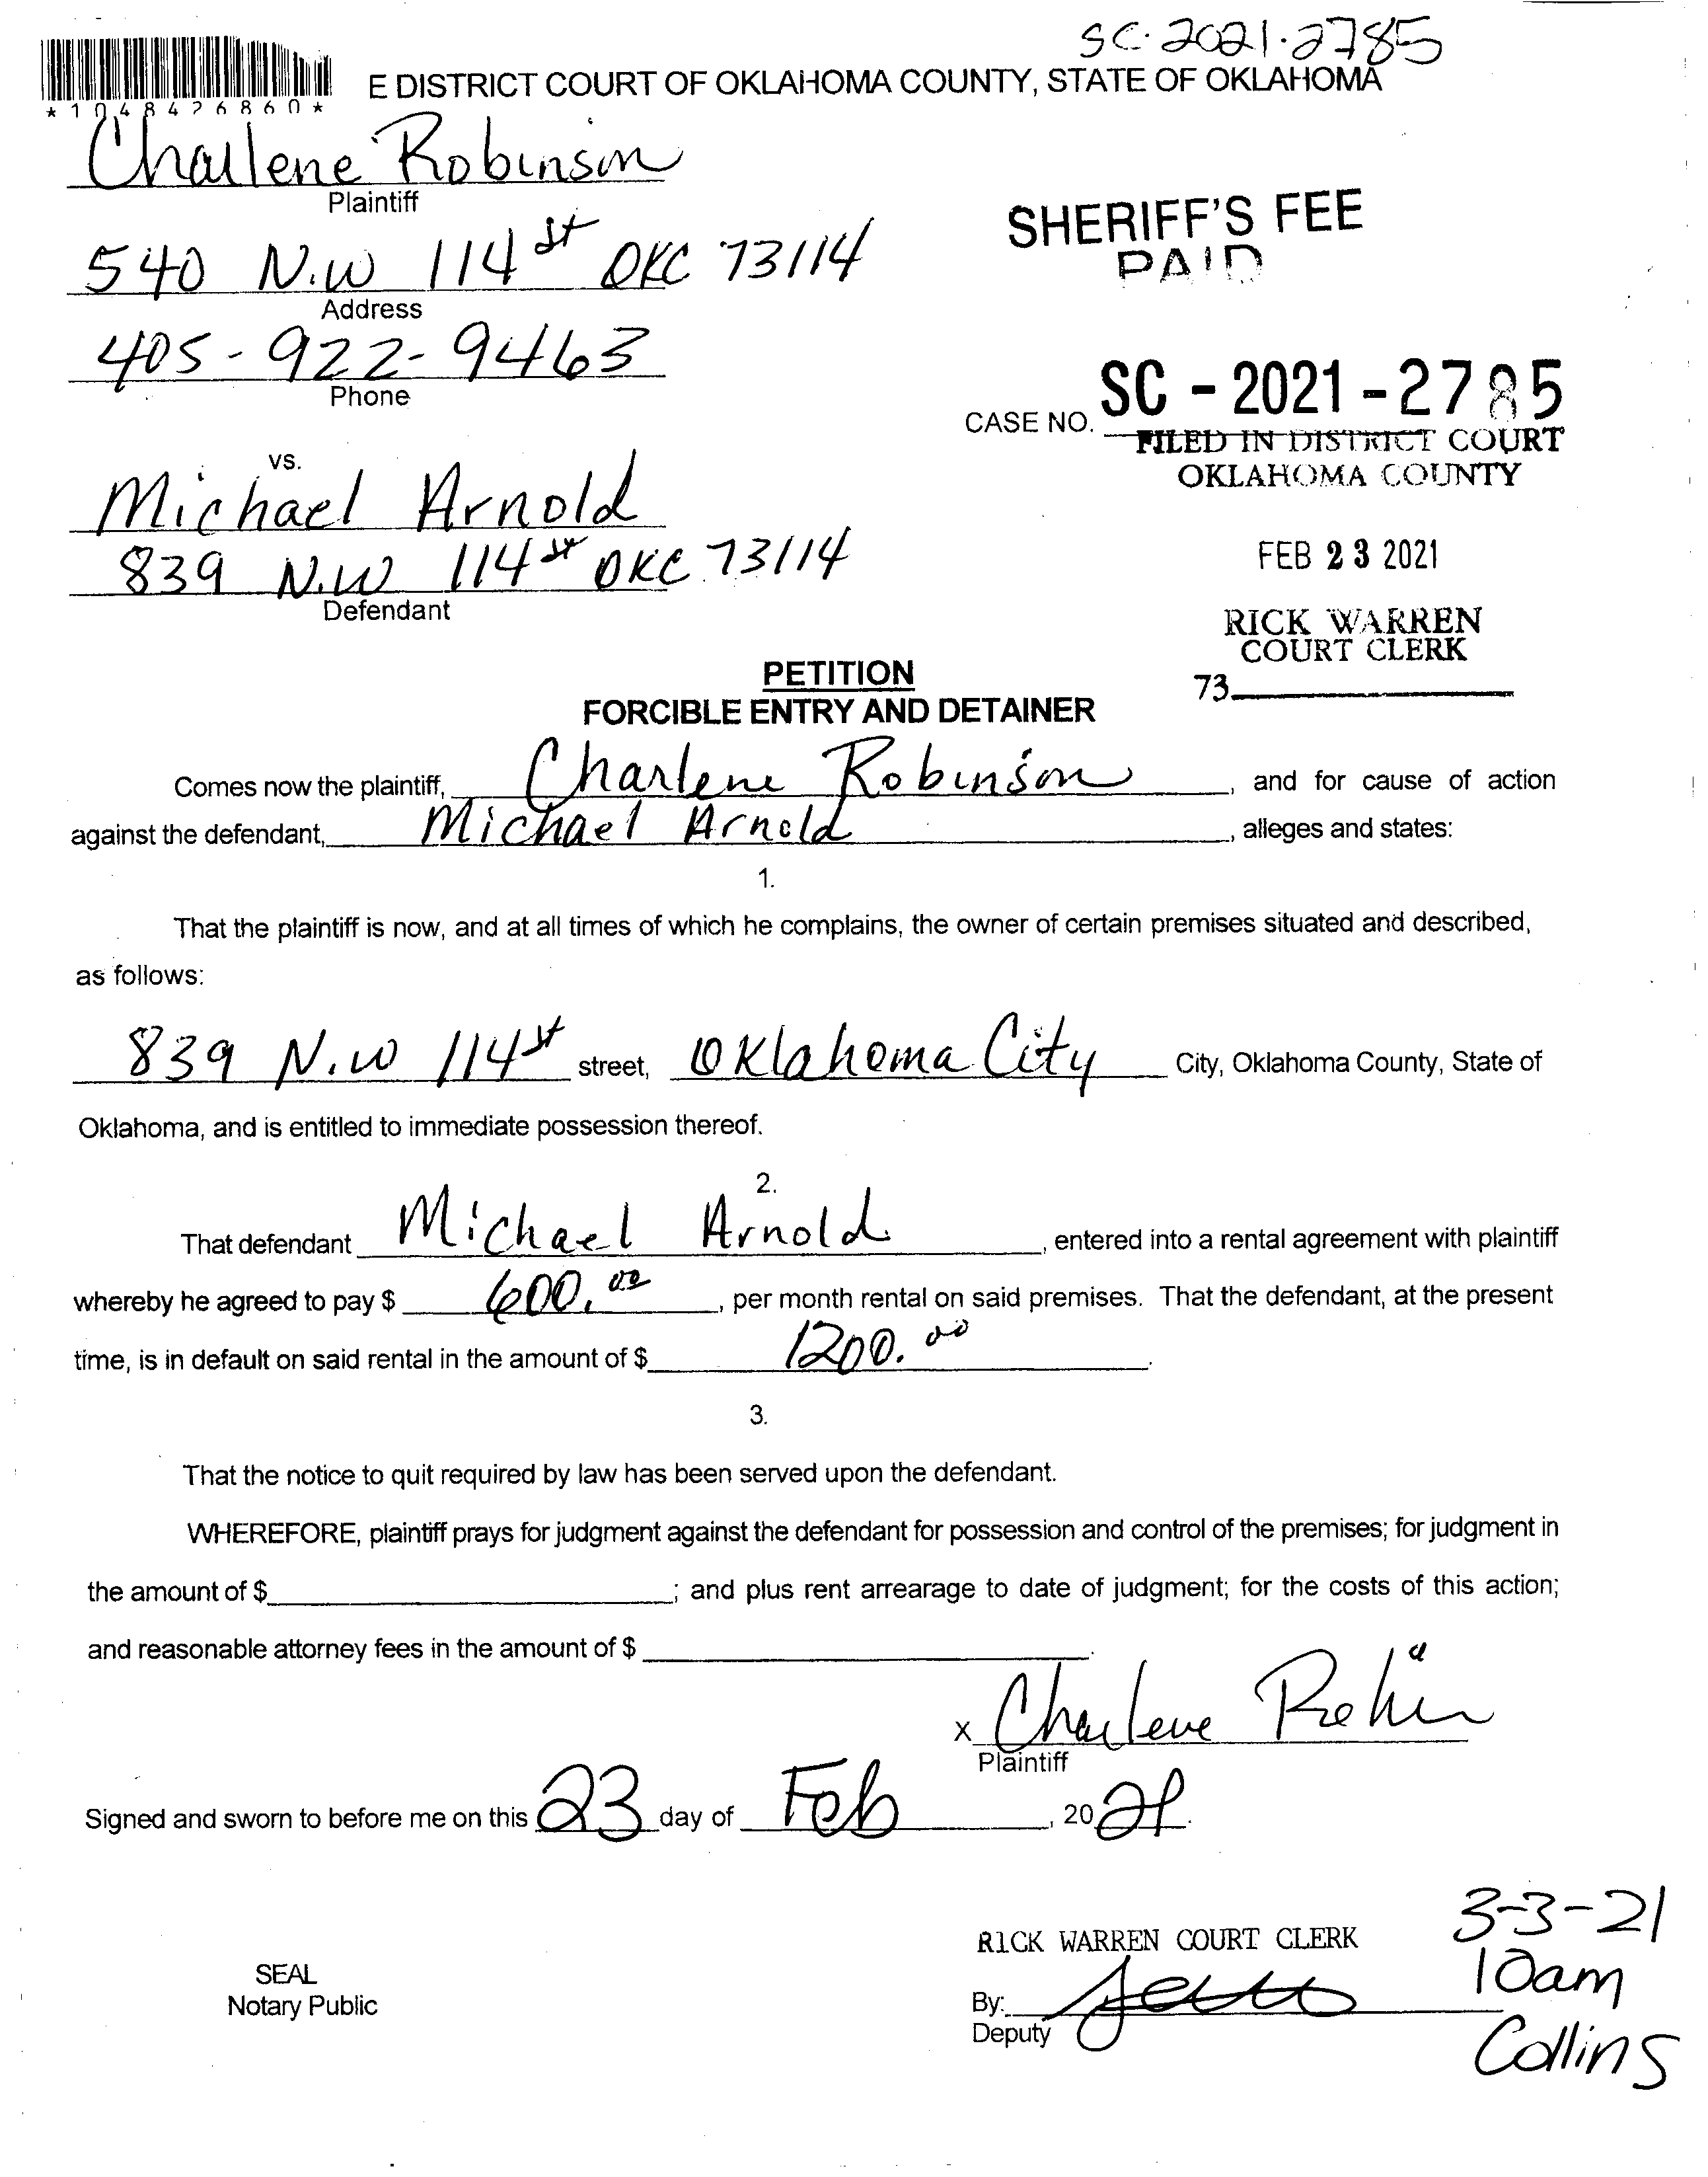 SC-2021-2785
E DISTRICT COURT OF OKLAHOMA COUNTY, STATE OF OKLAHOMA
*1048426860*
Charlene Robinson
Plaintiff
SHERIFF'S FEE
PAID
540 N.W 114st OKC 73114
Address
405-922-9463
Phone
CASE NO. SC - 2021 - 2785
FILED IN DISTRICT COURT
OKLAHOMA COUNTY
vs.
Michael Arnold
839 N.W 114st OKC 73114
Defendant
FEB 23 2021
RICK WARREN
COURT CLERK
73
PETITION
FORCIBLE ENTRY AND DETAINER
Comes now the plaintiff, Charlene Robinson, and for cause of action
against the defendant, Michael Arnold, alleges and states:
1.
That the plaintiff is now, and at all times of which he complains, the owner of certain premises situated and described,
as follows:
839 N.W 114st street, Oklahoma City City, Oklahoma County, State of
Oklahoma, and is entitled to immediate possession thereof.
2.
That defendant Michael Arnold, entered into a rental agreement with plaintiff
whereby he agreed to pay $ 600.00, per month rental on said premises. That the defendant, at the present
time, is in default on said rental in the amount of $ 1200.00.
3.
That the notice to quit required by law has been served upon the defendant.
WHEREFORE, plaintiff prays for judgment against the defendant for possession and control of the premises; for judgment in
the amount of $ ; and plus rent arrearage to date of judgment; for the costs of this action;
and reasonable attorney fees in the amount of $ .
x Charlene
Plaintiff
Signed and sworn to before me on this 23 day of Feb, 2021.
RICK WARREN COURT CLERK
3-3-21
10am
Collins
SEAL
Notary Public
By:
Deputy